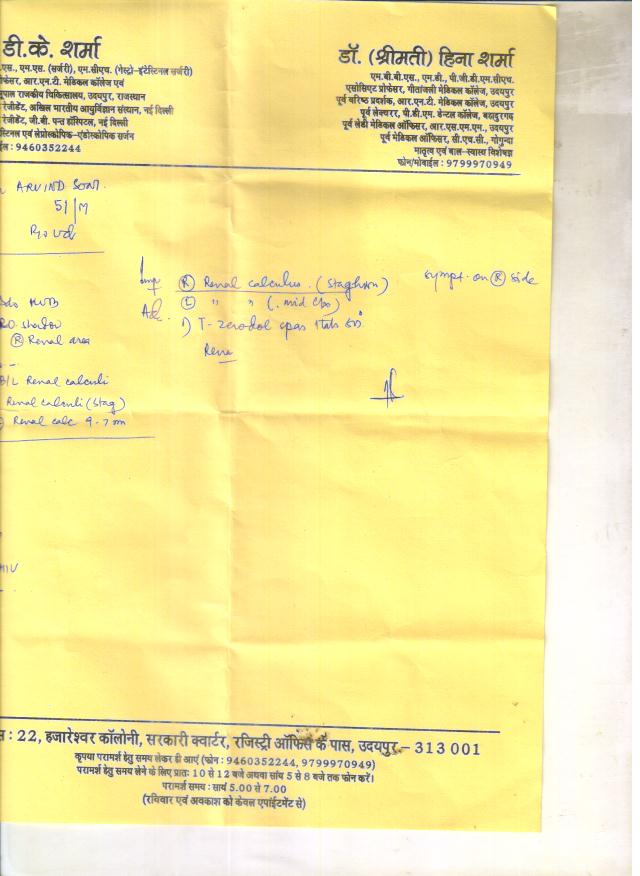 डी.के. शर्मा
एस., एम.एस. (सर्जरी), एम.सीएच. (गेस्ट्रो-इंटेस्टिनल सर्जरी)
फेसर, आर.एन.टी. मेडिकल कॉलेज एवं
पाल राजकीय चिकित्सालय, उदयपुर, राजस्थान
रेजीडेंट, अखिल भारतीय आयुर्विज्ञान संस्थान, नई दिल्ली
रेजीडेंट, जी.बी. पन्त हॉस्पिटल, नई दिल्ली
स्टिनल एवं लेप्रोस्कोपिक-एंडोस्कोपिक सर्जन
ईल : 9460352244
डॉ. (श्रीमती) हिना शर्मा
एम.बी.बी.एस., एम.डी., पी.जी.डी.एम.सीएच.
एसोसिएट प्रोफेसर, गीतांजली मेडिकल कॉलेज, उदयपुर
पूर्व वरिष्ठ प्रदर्शक, आर.एन.टी. मेडिकल कॉलेज, उदयपुर
पूर्व लेक्चरर, पी.डी.एम. डेन्टल कॉलेज, बहादुरगढ़
पूर्व लेडी मेडिकल ऑफिसर, आर.एस.एम.एम., उदयपुर
पूर्व मेडिकल ऑफिसर, सी.एच.सी., गोगुन्दा
मातृत्व एवं बाल-स्वास्थ्य विशेषज्ञ
फोन/मोबाईल : 9799970949
ARVIND SONI
51/M
R/o Ud
shadow
Ⓡ Renal area
B/L Renal calculi
Renal calculi (stag)
Renal calc 9.7 m
HIV
Imp Ⓡ Renal calculus (staghorn)
Ⓛ " " (mid
sympt. on Ⓡ side
Adv.
1) T- zerodol spas 1 tab sos
: 22, हजारेश्वर कॉलोनी, सरकारी क्वार्टर, रजिस्ट्री ऑफिस के पास, उदयपुर - 313 001
कृपया परामर्श हेतु समय लेकर ही आएं (फोन : 9460352244, 9799970949)
परामर्श हेतु समय लेने के लिए प्रातः 10 से 12 बजे अथवा सांय 5 से 8 बजे तक फोन करें।
परामर्श समय : सायं 5.00 से 7.00
(रविवार एवं अवकाश को केवल एपाईंटमेंट से)